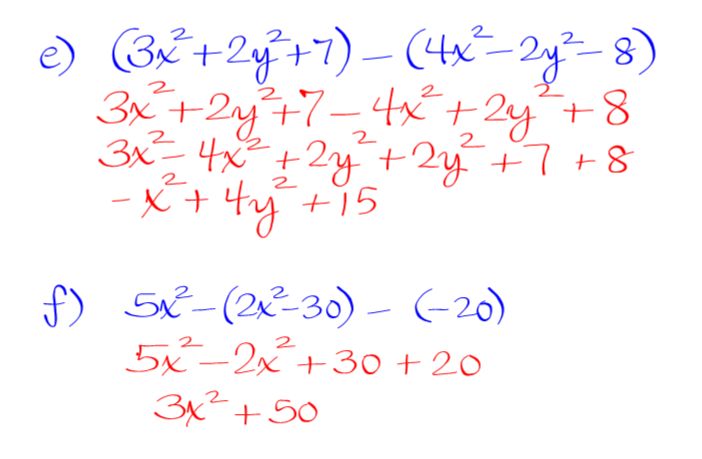 e) (3x²+2y²+7) – (4x²–2y²–8)
3x²+2y²+7–4x²+2y²+8
3x²–4x²+2y²+2y²+7+8
–x²+4y²+15
f) 5x²–(2x²–30) – (–20)
5x²–2x²+30+20
3x²+50